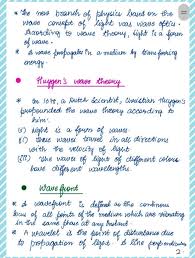 * The new branch of physics based on the
wave concept of light was wave optics.
According to wave theory, light is a form
of wave.
* A wave propagates in a medium by transferring
energy
Huygen's wave theory
* In 1678, a Dutch Scientist, Christian Huygen's
propounded the wave theory according to
him.
(i) Light is a form of wave
(ii) These waves travel in all directions
with the velocity of light
(III) The waves of light of different colors
have different wavelengths.
Wavefront
* A wavefront is defined as the continuous
locus of all points of the medium which are vibrating
in the same phase at any instant
* A wavelet is the point of disturbance due
to propagation of light
2